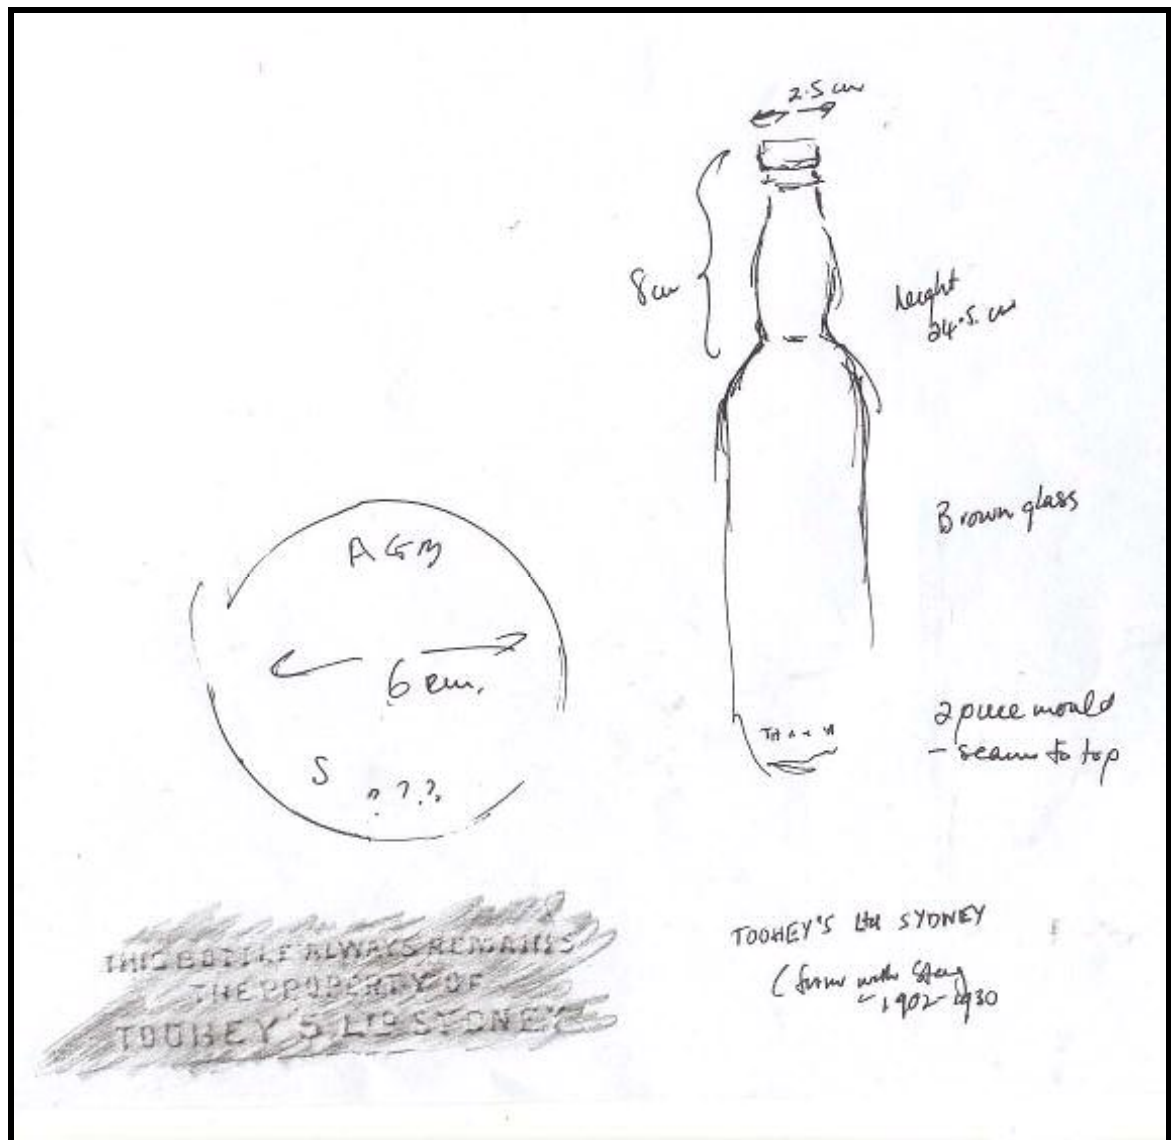 2.5 cm
8 cm
height
24.5. cm
Brown glass
AGM
6 cm.
S ???
2 piece mould
- seam to top
THIS BOTTLE ALWAYS REMAINS
THE PROPERTY OF
TOOHEY'S LTD SYDNEY
TOOHEY'S Ltd SYDNEY
with Stag
~1902-1930